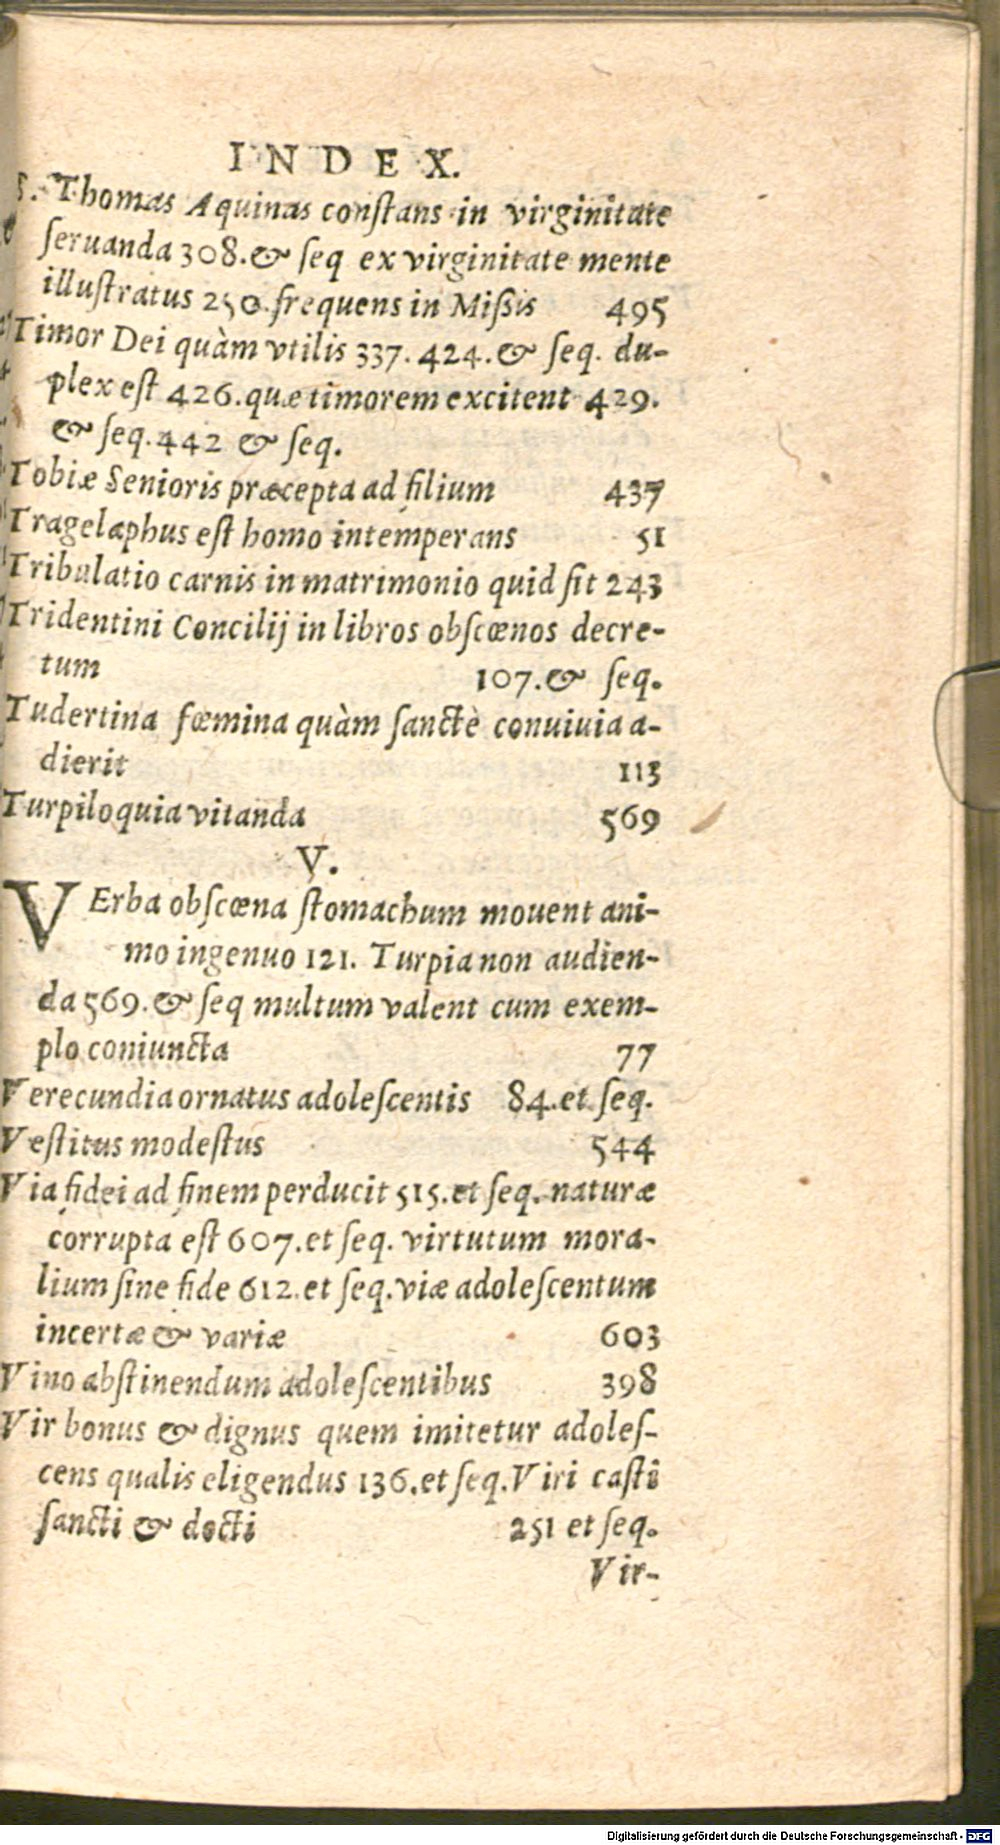 INDEX.
S. Thomas Aquinas conſtans in virginitate
ſeruanda 308. & ſeq ex virginitate mente
illuſtratus 250. frequens in Miſsis 495
Timor Dei quàm vtilis 337. 424. & ſeq. du-
plex eſt 426. quæ timorem excitent 429.
& ſeq. 442 & ſeq.
Tobiæ Senioris præcepta ad filium 437
Tragelaphus eſt homo intemperans 51
Tribulatio carnis in matrimonio quid ſit 243
Tridentini Concilij in libros obſcœnos decre-
tum 107. & ſeq.
Tudertina fœmina quàm ſanctè conuiuia a-
dierit 113
Turpiloquia vitanda 569
V.
VErba obſcœna ſtomachum mouent ani-
mo ingenuo 121. Turpia non audien-
da 569. & ſeq multum valent cum exem-
plo coniuncta 77
Verecundia ornatus adoleſcentis 84. et ſeq.
Veſtitus modeſtus 544
Via fidei ad finem perducit 515. et ſeq. naturæ
corrupta eſt 607. et ſeq. virtutum mora-
lium ſine fide 612. et ſeq. viæ adoleſcentum
incertæ & variæ 603
Vino abſtinendum adoleſcentibus 398
Vir bonus & dignus quem imitetur adoleſ-
cens qualis eligendus 136. et ſeq. Viri caſti
ſancti & docti 251 et ſeq.
Vir-
Digitalisierung gefördert durch die Deutsche Forschungsgemeinschaft - DFG